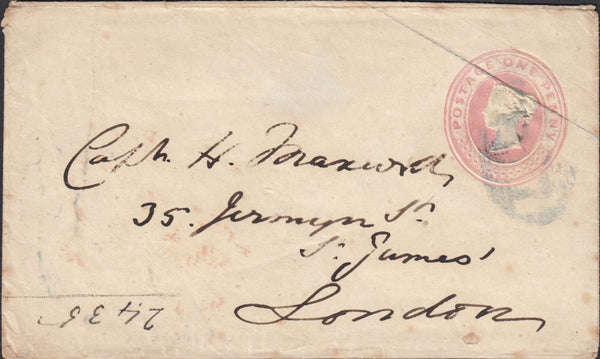 POSTAGE ONE PENNY
Capt. H. Maxwell,
35. Jermyn St.
St. James'
London